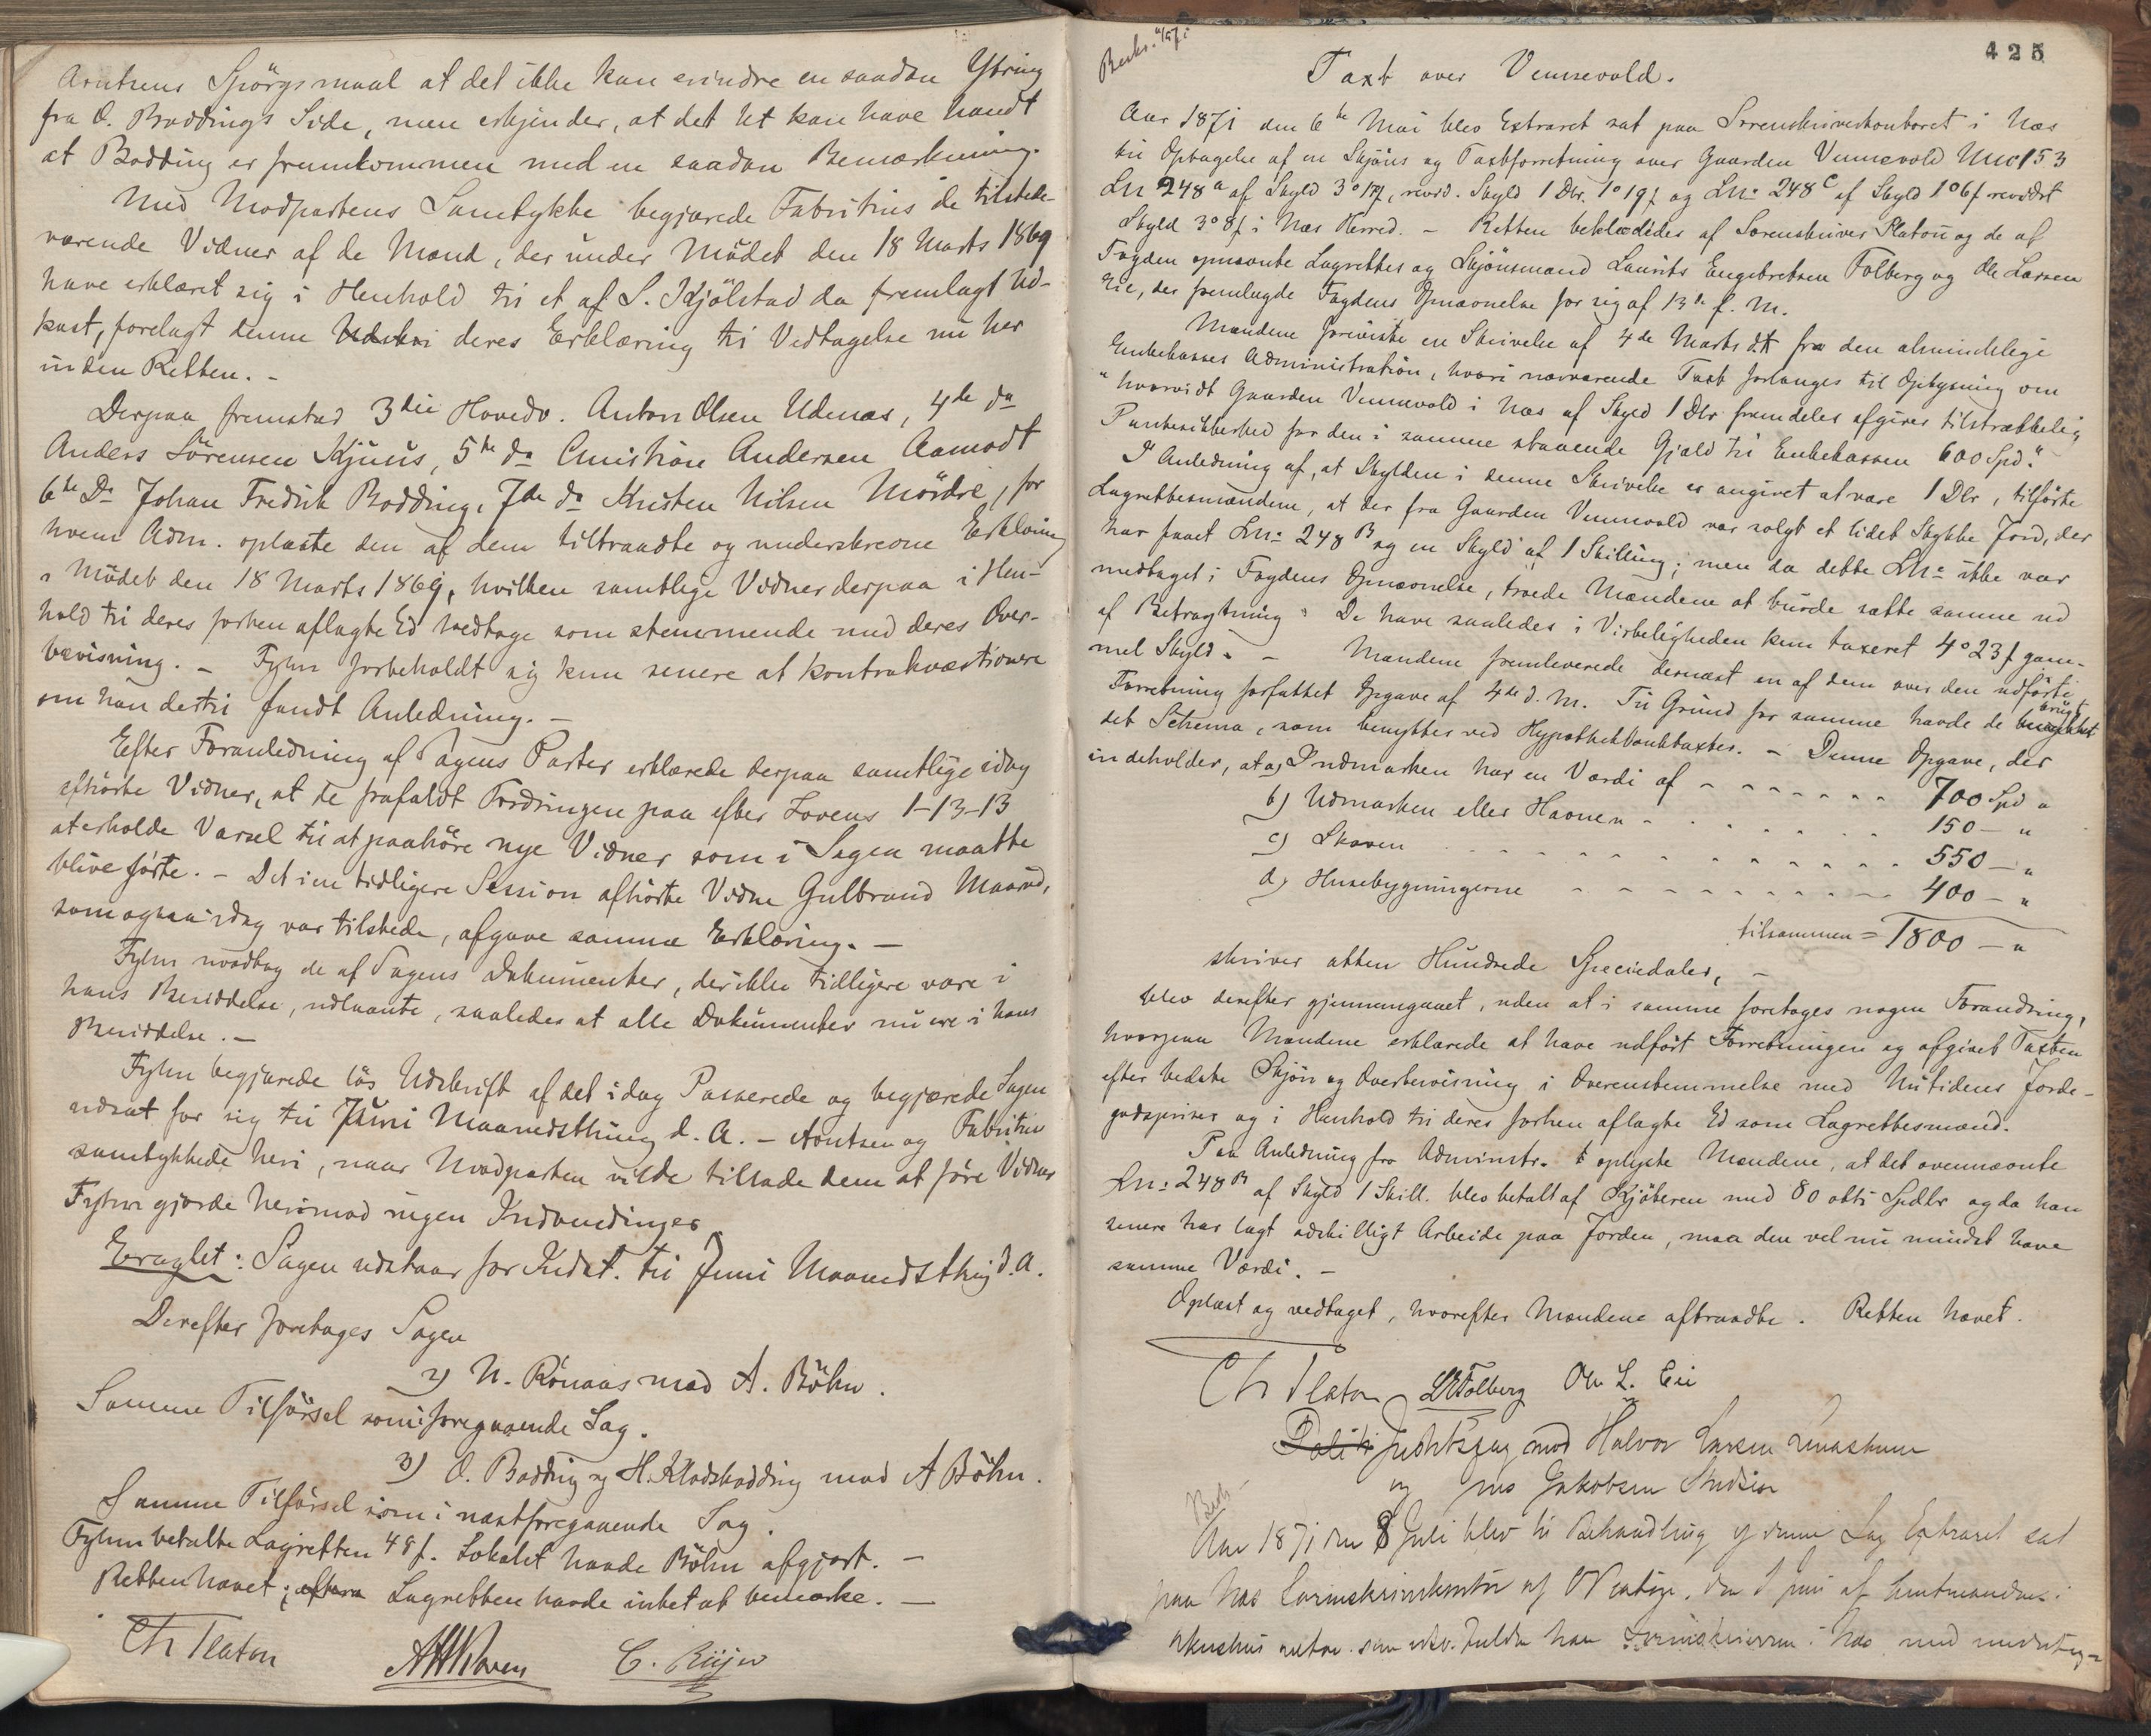 Arntsens Spörgsmaal at det ikke kan erindre en saadan Ytring
fra O. Boddings Side, men erkjender, at det let kan have hændt
at Bodding er fremkommen med en saadan Bemærkning.
Med Modpartens Samtykke begjærede Fabritius de tilstede-
værende Vidner af de Mænd, der under Mödet den 18 Marts 1869
have erklæret sig i Henhold til et af S. Kjölstad da fremlagt Ud-
kast, forelagt denne deres Erklæring til Vedtagelse nu her
inden Retten. -
Derpaa fremstod 3die Hovedv. Anton Olsen Udenæs, 4de do
Anders Sörensen Kjuus, 5te do Christian Andersen Aamodt
6te Do Johan Fredrik Bodding, 7de do Kristen Nilsen Mördre, for
hvem Adm. oplæste den af dem tiltraadte og underskrevne Erklæring
i Mödet den 18 Marts 1869, hvilken samtlige Vidner derpaa i Hen-
hold til deres forhen aflagte Ed vedtage som stemmende med deres Over-
bevisning. - Fyhn forbeholdt sig kun senere at kontrakvæstionere
om han dertil fandt Anledning. -
Efter Foranledning af Sagens Parter erklærede derpaa samtlige idag
afhörte Vidner, at de frafaldt Fordringen paa efter Lovens 1-13-13
at erholde Varsel til at paahöre nye Vidner som i Sagen maatte
blive förte. - Det i en tidligere Session afhörte Vidne Gulbrand Maarud,
som ogsaa idag var tilstede, afgave samme Erklæring. -
Fyhn modtog de af Sagens Dokumenter, der ikke tidligere vare i
hans Besiddelse, udlaante, saaledes at alle Dokumenter nu ere i hans
Besiddelse. -
Fyhn begjærede lös Udskrift af det idag Passerede og begjærede Sagen
udsat for sig til Juni Maanedsthing d. A. - Arntsen og Fabritius
samtykkede heri, naar Modparten vilde tillade dem at före Vidner
Fyhn gjorde herimod ingen Indvendinger
Eragtet: Sagen udstaar for Indst. til Juni Maanedsthing d. A.
Derefter foretages Sagen
2) N. Rönaas mod A. Böhn.
Samme Tilförsel som i foregaaende Sag.
3) O. Bodding og H. Klodsbodding mod A Böhn.
Samme Tilförsel som i næstforegaaende Sag.
Fyhn betalte Lagretten 48 f. Lokalet havde Böhn afgjort. -
Retten hævet; Lagretten havde intet at bemærke. -
Ch Platou
C.
425
Taxt over Vennevold.
Aar 1871 den 6te Mai blev Extraret sat paa Sorenskriverkontoret i Næs
til Optagelse af en Skjöns og Taxtforretning over Gaarden Vennevold Mno 153
Lno 248a af Skyld 3 o 17 f, revid. Skyld 1 Dlr. 1 o 19 f og Lno 248c af Skyld 1 o 6 f revideret
Skyld 3 o 8 f i Næs Herred. - Retten beklædtes af Sorenskriver Platou og de af
Fogden opnævnte Lagrettes og Skjönsmænd Laurits Engebretsen Folberg og Ole Larsen
Eie, der fremlagde Fogdens Opnævnelse for sig af 13de f. M.
Mændene foreviste en Skrivelse af 4de Marts d.A fra den almindelige
Enkekasses Administration, hvori nærværende Taxt forlanges til Oplysning om
"hvorvidt Gaarden Vennevold i Næs af Skyld 1 Dlr fremdeles afgiver tilstrækkelig
Pantesikkerhed for den i samme staaende Gjæld til Enkekassen 600 Spd."
I Anledning af, at Skylden i denne Skrivelse er angivet at være 1 Dlr, tilförte
Lagrettesmændene, at der fra Gaarden Vennevold var solgt et lidet Stykke Jord, der
har faaet Lno 248 B og en Skyld af 1 Skilling; men da dette Lno ikke var
medtaget i Fogdens Opnævnelse, troede Mændene at burde sætte samme ud
af Betragtning. De have saaledes i Virkeligheden kun taxeret 4 o 23 f gam-
mel Skyld. - Mændene fremleverede dernæst en af dem over den udförte
Forretning forfattet Opgave af 4de d. M. Til Grund for samme havde de brugt
det Schema, som benyttes ved Hypothekbanktaxter. - Denne Opgave, der
indeholder, at a) Indmarken har en Værdi af - - - - - - - 700 Spd "
b) Udmarken eller Havnen - - - - - - - 150 - "
c) Skoven - - - - - - - - - - - 550 - "
d) Husebygningerne - - - - - - - - - 400 - "
tilsammen = 1800 - "
skriver atten Hundrede Speciedaler, -
blev derefter gjennemgaaet, uden at i samme foretages nogen Forandring,
hvorpaa Mændene erklærede at have udfört Forretningen og afgivet Taxten
efter bedste Skjön og Overbevisning i Overensstemmelse med Nutidens Jorde-
godspriser og i Henhold til deres forhen aflagte Ed som Lagrettesmænd.
Paa Anledning fra Administr. oplyste Mændene, at det ovennævnte
Lno 248 B af Skyld 1 Skill. blev betalt af Kjöberen med 80 otti Spdlr og da han
senere har lagt adskilligt Arbeide paa Jorden, maa den vel nu mindst have
samme Værdi. -
Oplæst og vedtaget, hvorefter Mændene aftraadte. Retten hævet.
Ch Platou LEFolberg Ole L. Eie
Politi Justitssag mod Halvor Larsen
og Jens Jakobsen
Aar 1871 den 8 Juli blev til Behandling af denne Sag Extraret sat
paa Næs Sorenskriverkontor af den af Amtmanden i
Akershus som Sorenskriveren i Næs med